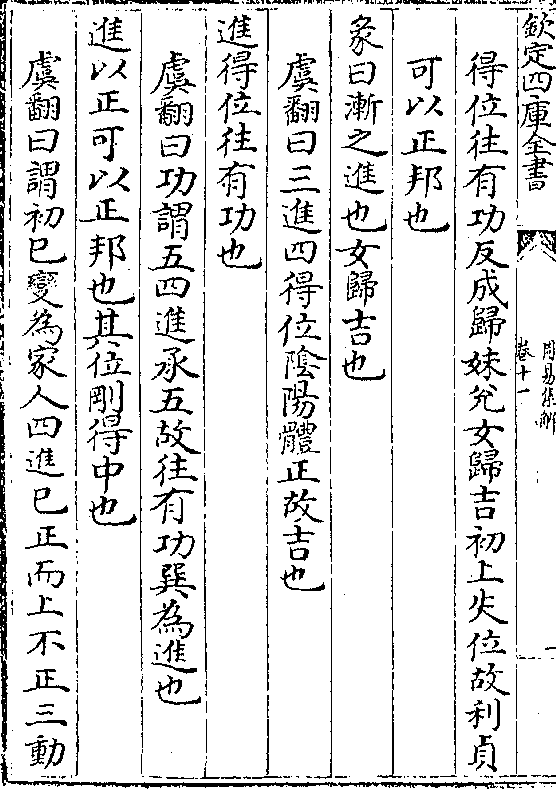 欽定四庫全書
周易集解
卷十一
一
得位往有功反成歸妹兊女歸吉初上失位故利貞
可以正邦也
彖曰漸之進也女歸吉也
虞翻曰三進四得位陰陽體正故吉也
進得位往有功也
虞翻曰功謂五四進承五故往有功巽為進也
進以正可以正邦也其位剛得中也
虞翻曰謂初已變為家人四進已正而上不正三動